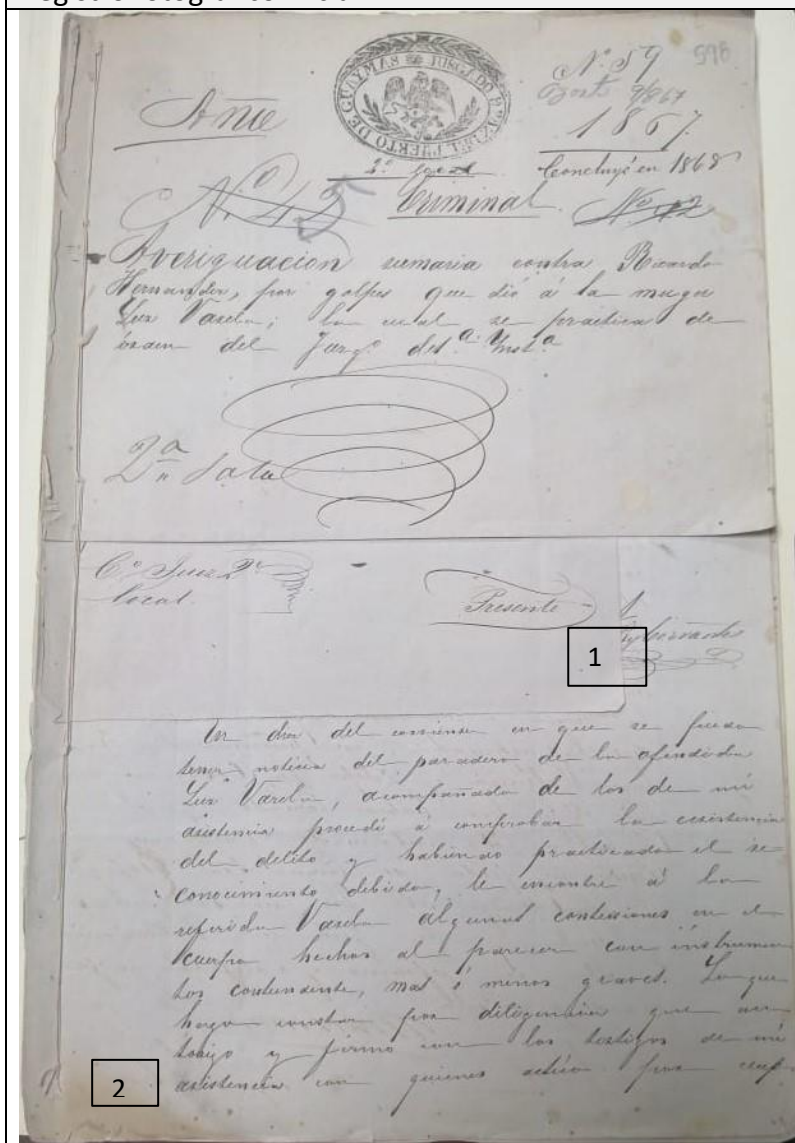 JUZGADO 2º DE PAZ DEL PUERTO DE GUAYMAS
Nº 59 598
Año
1867.
2º
Concluyó en 1868
Nº 45 Criminal. Nº 42
Averiguacion sumaria contra Ricardo
Hernandez, por golpes que dió á la muger
Luz Varela; la cual se practica de
órden del Juzgº de 1.ª Inst.ª
2ª Sala
Cº Juez 2º
Local. Presente
1
Un dia del corriente en que se pudo
tener noticia del paradero de la ofendida
Luz Varela, acompañado de los de mi
asistencia procedí á comprobar la ecsistencia
del delito y habiendo practicado el re
conocimiento debido, le encontré á la
referida Varela algunas contusiones en el
cuerpo hechas al parecer con instrumen
tos contundente, mas ó menos graves. Lo que
hago constar por diligencia que au
torizo y firmo con los testigos de mi
asistencia con quienes actúo por
2